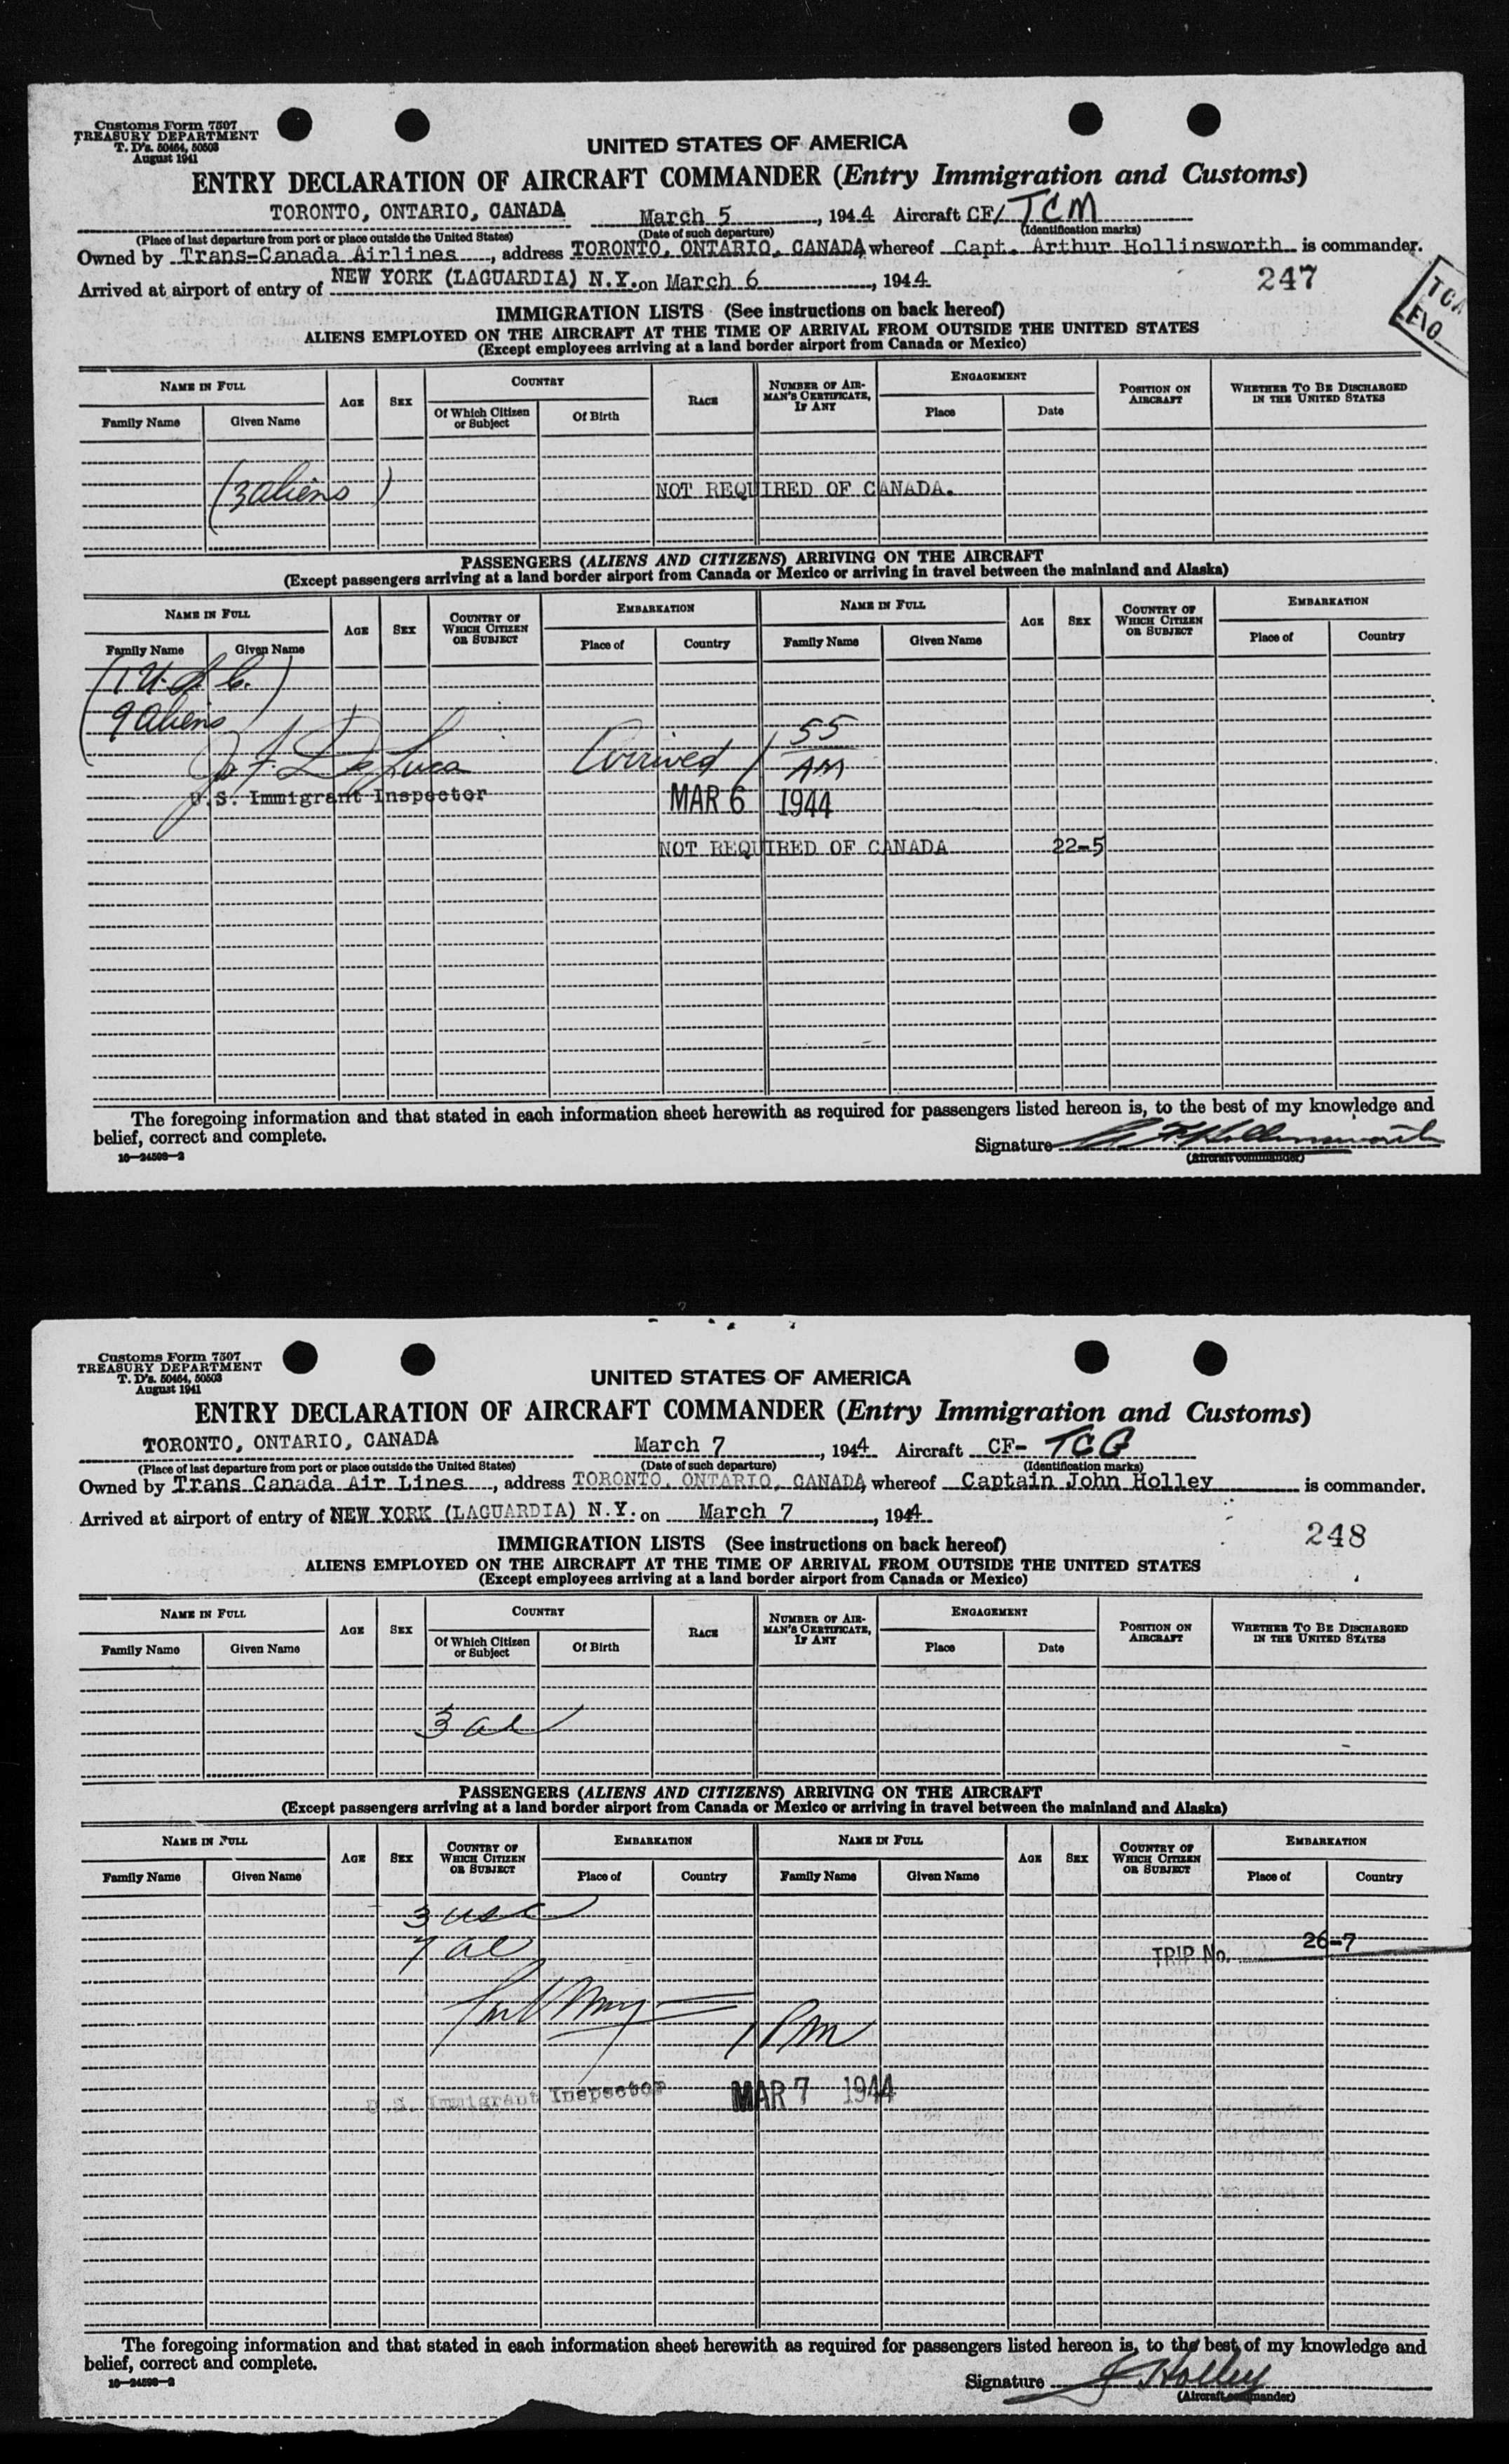 Customs Form 7507
TREASURY DEPARTMENT
T. D's. 50464, 50503
August 1941
UNITED STATES OF AMERICA
ENTRY DECLARATION OF AIRCRAFT COMMANDER (Entry Immigration and Customs)
TORONTO, ONTARIO, CANADA March 5, 1944 Aircraft CF/ TCM
(Place of last departure from port or place outside the United States) (Date of such departure) (Identification marks)
Owned by Trans-Canada Airlines, address TORONTO, ONTARIO, CANADA whereof Capt. Arthur Hollinsworth is commander.
Arrived at airport of entry of NEW YORK (LAGUARDIA) N.Y. on March 6, 1944
247
TCA
IMMIGRATION LISTS (See instructions on back hereof)
ALIENS EMPLOYED ON THE AIRCRAFT AT THE TIME OF ARRIVAL FROM OUTSIDE THE UNITED STATES
(Except employees arriving at a land border airport from Canada or Mexico)
NAME IN FULL AGE SEX COUNTRY RACE NUMBER OF AIRMAN'S CERTIFICATE, IF ANY ENGAGEMENT POSITION ON AIRCRAFT WHETHER TO BE DISCHARGED IN THE UNITED STATES
Family Name Given Name Of Which Citizen or Subject Of Birth Place Date
(3 aliens) NOT REQUIRED OF CANADA.
PASSENGERS (ALIENS AND CITIZENS) ARRIVING ON THE AIRCRAFT
(Except passengers arriving at a land border airport from Canada or Mexico or arriving in travel between the mainland and Alaska)
NAME IN FULL AGE SEX COUNTRY OF WHICH CITIZEN OR SUBJECT EMBARKATION NAME IN FULL AGE SEX COUNTRY OF WHICH CITIZEN OR SUBJECT EMBARKATION
Family Name Given Name Place of Country Family Name Given Name Place of Country
(1 U.S.C.
9 aliens)
J. F. De Luca Arrived 1 55 AM
U.S. Immigrant Inspector MAR 6 1944
NOT REQUIRED OF CANADA 22-5
The foregoing information and that stated in each information sheet herewith as required for passengers listed hereon is, to the best of my knowledge and
belief, correct and complete.
Signature A Hollinsworth
16—24598-2 (Aircraft commander)
Customs Form 7507
TREASURY DEPARTMENT
T. D's. 50464, 50503
August 1941
UNITED STATES OF AMERICA
ENTRY DECLARATION OF AIRCRAFT COMMANDER (Entry Immigration and Customs)
TORONTO, ONTARIO, CANADA March 7, 1944 Aircraft CF- TCG
(Place of last departure from port or place outside the United States) (Date of such departure) (Identification marks)
Owned by Trans Canada Air Lines, address TORONTO, ONTARIO, CANADA whereof Captain John Holley is commander.
Arrived at airport of entry of NEW YORK (LAGUARDIA) N.Y. on March 7, 1944
248
IMMIGRATION LISTS (See instructions on back hereof)
ALIENS EMPLOYED ON THE AIRCRAFT AT THE TIME OF ARRIVAL FROM OUTSIDE THE UNITED STATES
(Except employees arriving at a land border airport from Canada or Mexico)
NAME IN FULL AGE SEX COUNTRY RACE NUMBER OF AIRMAN'S CERTIFICATE, IF ANY ENGAGEMENT POSITION ON AIRCRAFT WHETHER TO BE DISCHARGED IN THE UNITED STATES
Family Name Given Name Of Which Citizen or Subject Of Birth Place Date
3 al
PASSENGERS (ALIENS AND CITIZENS) ARRIVING ON THE AIRCRAFT
(Except passengers arriving at a land border airport from Canada or Mexico or arriving in travel between the mainland and Alaska)
NAME IN FULL AGE SEX COUNTRY OF WHICH CITIZEN OR SUBJECT EMBARKATION NAME IN FULL AGE SEX COUNTRY OF WHICH CITIZEN OR SUBJECT EMBARKATION
Family Name Given Name Place of Country Family Name Given Name Place of Country
3 usc
7 al TRIP No. 26-7
1 Pm
U.S. Immigrant Inspector MAR 7 1944
The foregoing information and that stated in each information sheet herewith as required for passengers listed hereon is, to the best of my knowledge and
belief, correct and complete.
Signature J Holley
16—24598-2 (Aircraft commander)